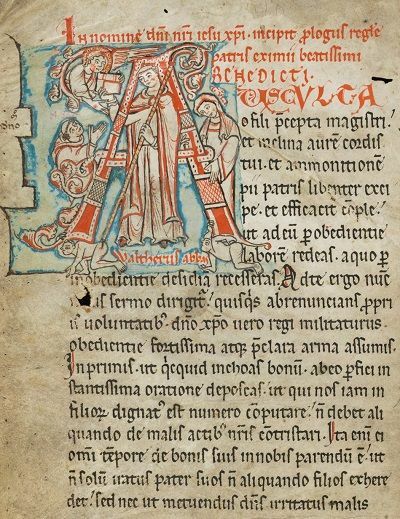 In nomine dñi nr̃i iesu xp̃i. incipit p̃logus regle
patris eximii beatissimi
BENEDICTI.
OSCULTA
o fili p̃cepta magistri.
et inclina aurẽ cordis
tui. et ammonitionẽ
pii patris libenter exci
pe. et efficacit̃ cõple.
ut ad eũ ꝑ obedientie
laborẽ redeas. a quo ꝑ
inobedientie desidia recesseras. Ad te ergo nũc
sermo dirigit᷑. quisq̃s abrenuncians ꝓpri
is voluntatib; dño xp̃o vero regi militaturus
obedientie fortissima atq; p̃clara arma assumis.
Inprimis. ut q̃cquid inchoas bonũ. ab eo ꝑfici in
stantissima oratione deposcas. ut qui nos iam in
filioꝝ dignat᷑ est numero computare. ñ debet ali
quando de malis actib; nr̃is cõtristari. Ita eni᷑ ei
om̃i tẽpore de bonis suis in nobis parendũ ẽ. ut
ñ solũ iratus pater suos ñ aliquando filios exhere
det. sed nec ut metuendus dñs irritatus malis
Waltherus abbas